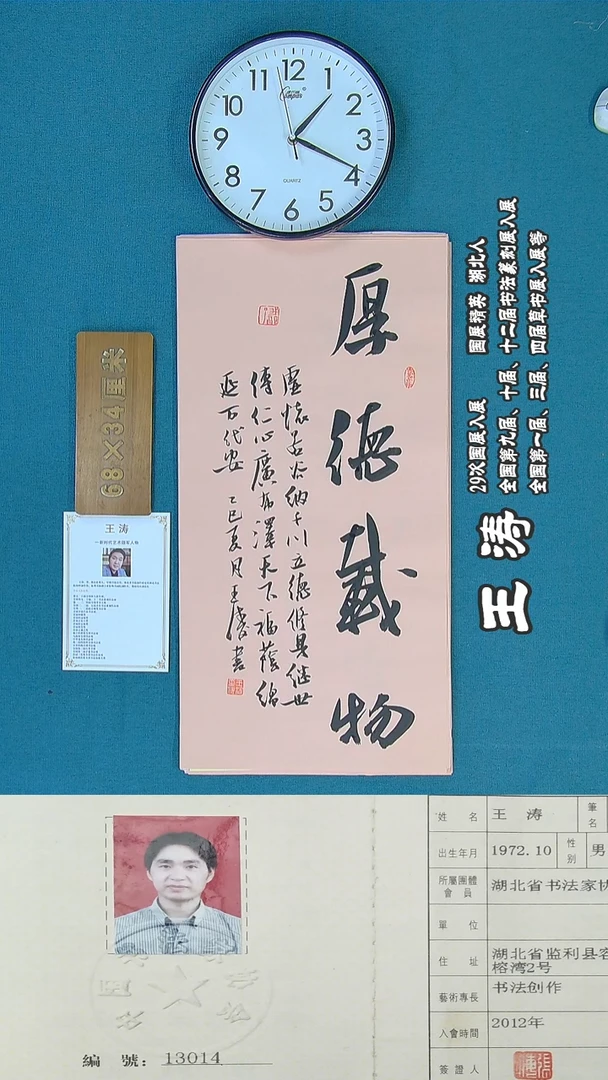 11 12 1
10 2
9 3
8 4
7 6 5
Compas
QUARTZ
厚德載物
虚懷若谷納千川立德修具继世
傳仁心廣布澤天下福蔭綿
延百代安 乙巳夏月王濤書
68×34厘米
王涛
29次国展入展 国展精英 湖北人
全国第九届、十届、十二届书法篆刻展入展
全国第一届、三届、四届草书展入展等
王涛
編 號：13014
姓 名 王 涛 筆名
出生年月 1972.10 性別 男
所屬團體會員 湖北省书法家协
單 位
住 址 湖北省监利县容
榕湾2号
藝術專長 书法创作
入會時間 2012年
簽證人